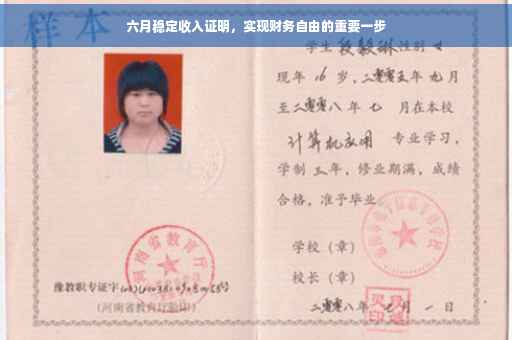 六月稳定收入证明，实现财务自由的重要一步
样本
学生段毅琳性别女
现年16岁，二零零五年九月
至二零零八年七 月在本校
计算机应用 专业学习，
学制三年，修业期满，成绩
合格，准予毕业
学校（章）
校长（章）
二零零八年七月一日
河南省教育厅
豫教职专证字
（河南省教育厅验印）